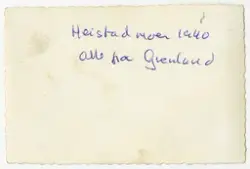 Heistad moen 1940
alle fra Grenland